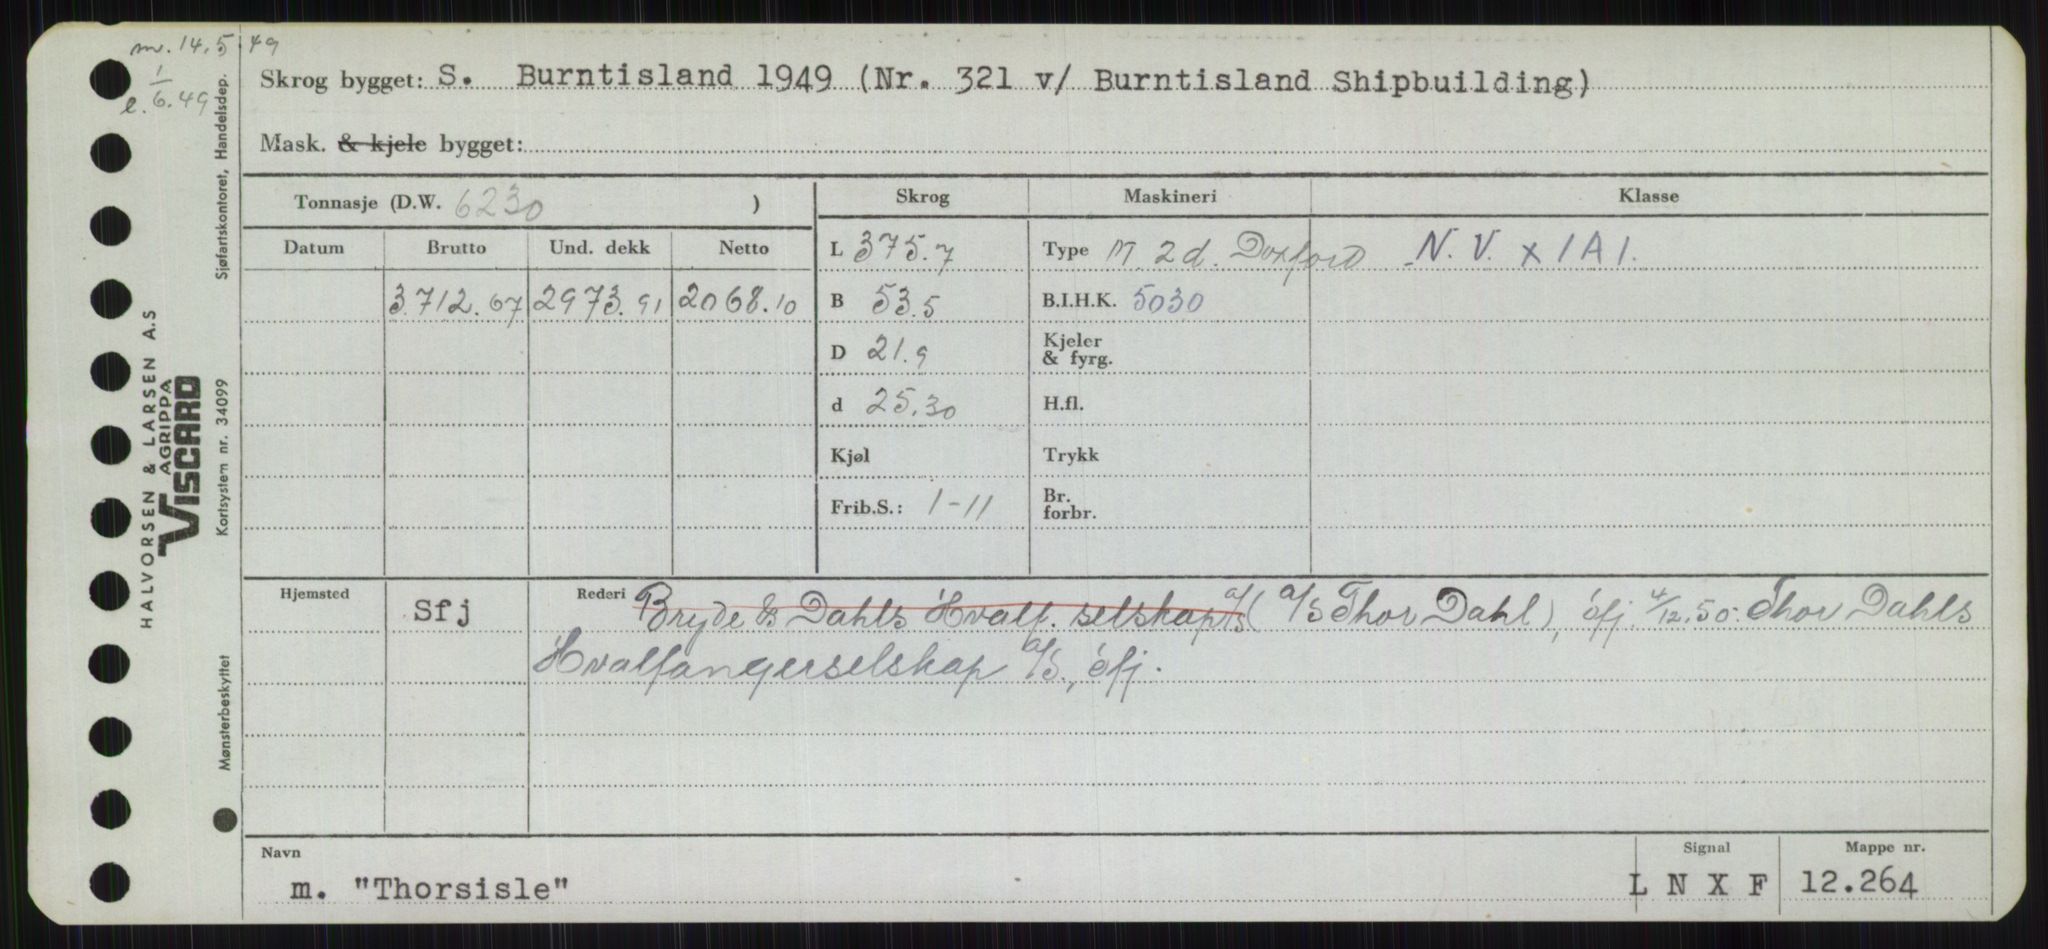 m. 14.5.49
1
l. 6.49
Skrog bygget: S. Burntisland 1949 (Nr. 321 v/ Burntisland Shipbuilding)
Mask. & kjele bygget:
Tonnasje (D.W. 6230 )
Skrog Maskineri Klasse
Datum Brutto Und. dekk Netto
L 375.7 Type M 2 d. Doxford N. V. x 1A1.
3712.67 2973.91 2068.10
B 53.5 B.I.H.K. 5030
D 21.9 Kjeler & fyrg.
d 25.30 H.fl.
Kjøl Trykk
Frib.S.: 1-11 Br. forbr.
Hjemsted Sfj Rederi Bryde & Dahls Hvalf. selskap a/s (A/S Thor Dahl), Sfj. 4/12.50: Thor Dahls
Hvalfangerselskap A/S., Sfj.
Navn Signal Mappe nr.
m. "Thorsisle" L N X F 12.264
Sjøfartskontoret, Handelsdep.
Kortsystem nr. 34099
Mønsterbeskyttet
HALVORSEN & LARSEN A.S
AGRIPPA
VISCARD